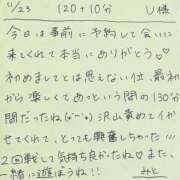 11/23 120+10分 U様
今日は事前に予約して会いに
来てくれて本当にありがとう♡
初めましてとは思えない位、最初
から楽しくてあっという間の130分
間だったね(*´˘`*) 沢山責めてイか
せてくれて、とっても興奮しちゃった!!!
2回戦して気持ち良かったね♡また、
一緒に遊ぼうね!! みと